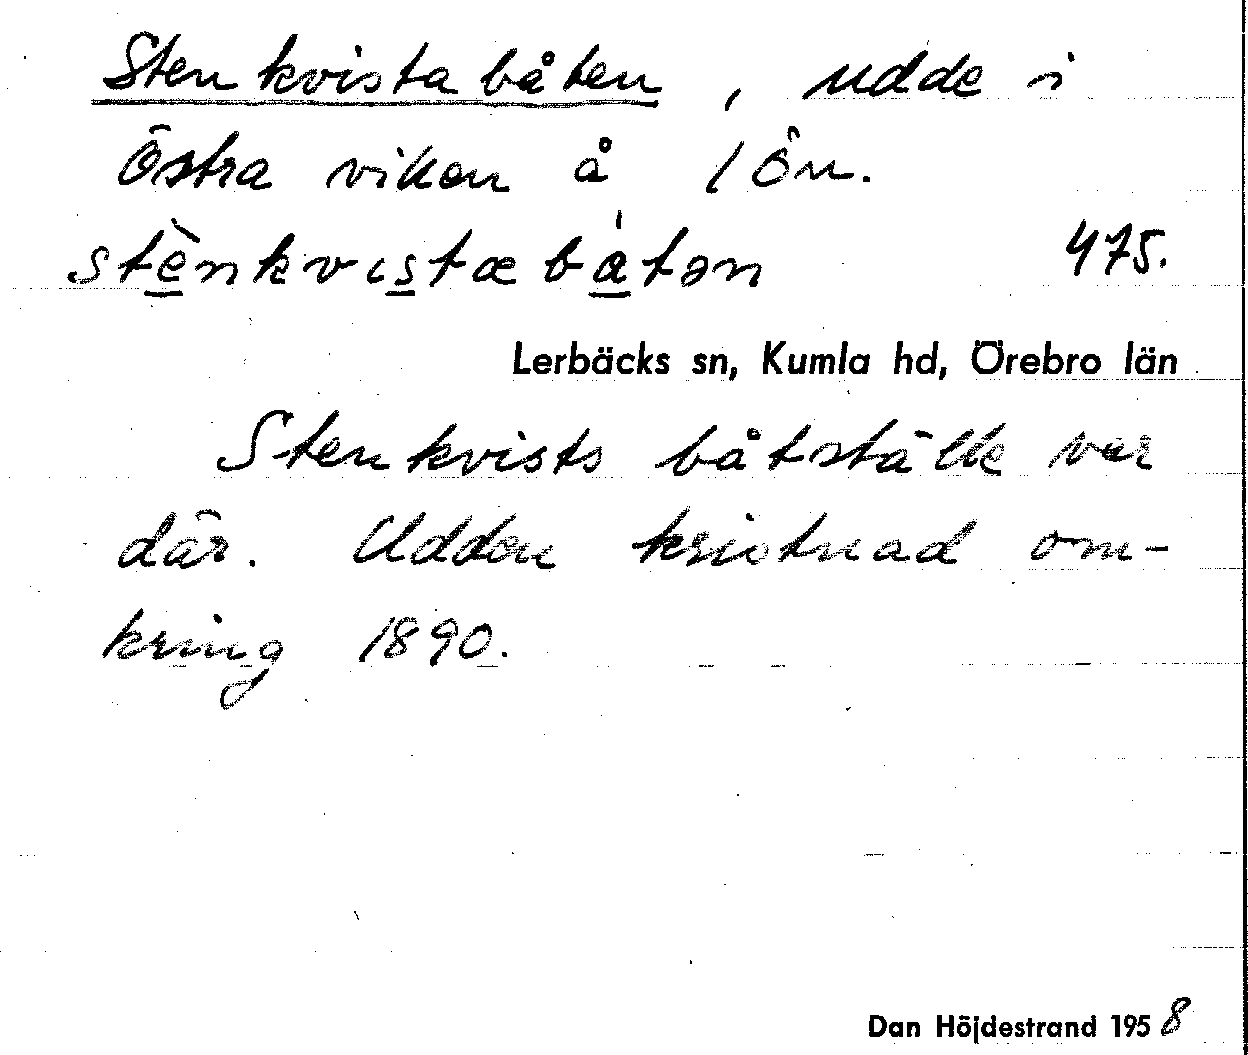 Stenkvistabåten, udde i
Östra viken å lön.
stènkvıstæbåtən 475.
Lerbäcks sn, Kumla hd, Örebro län
Stenkvists båtställe var
där. Udden kristnad om-
kring 1890.
Dan Höjdestrand 1958